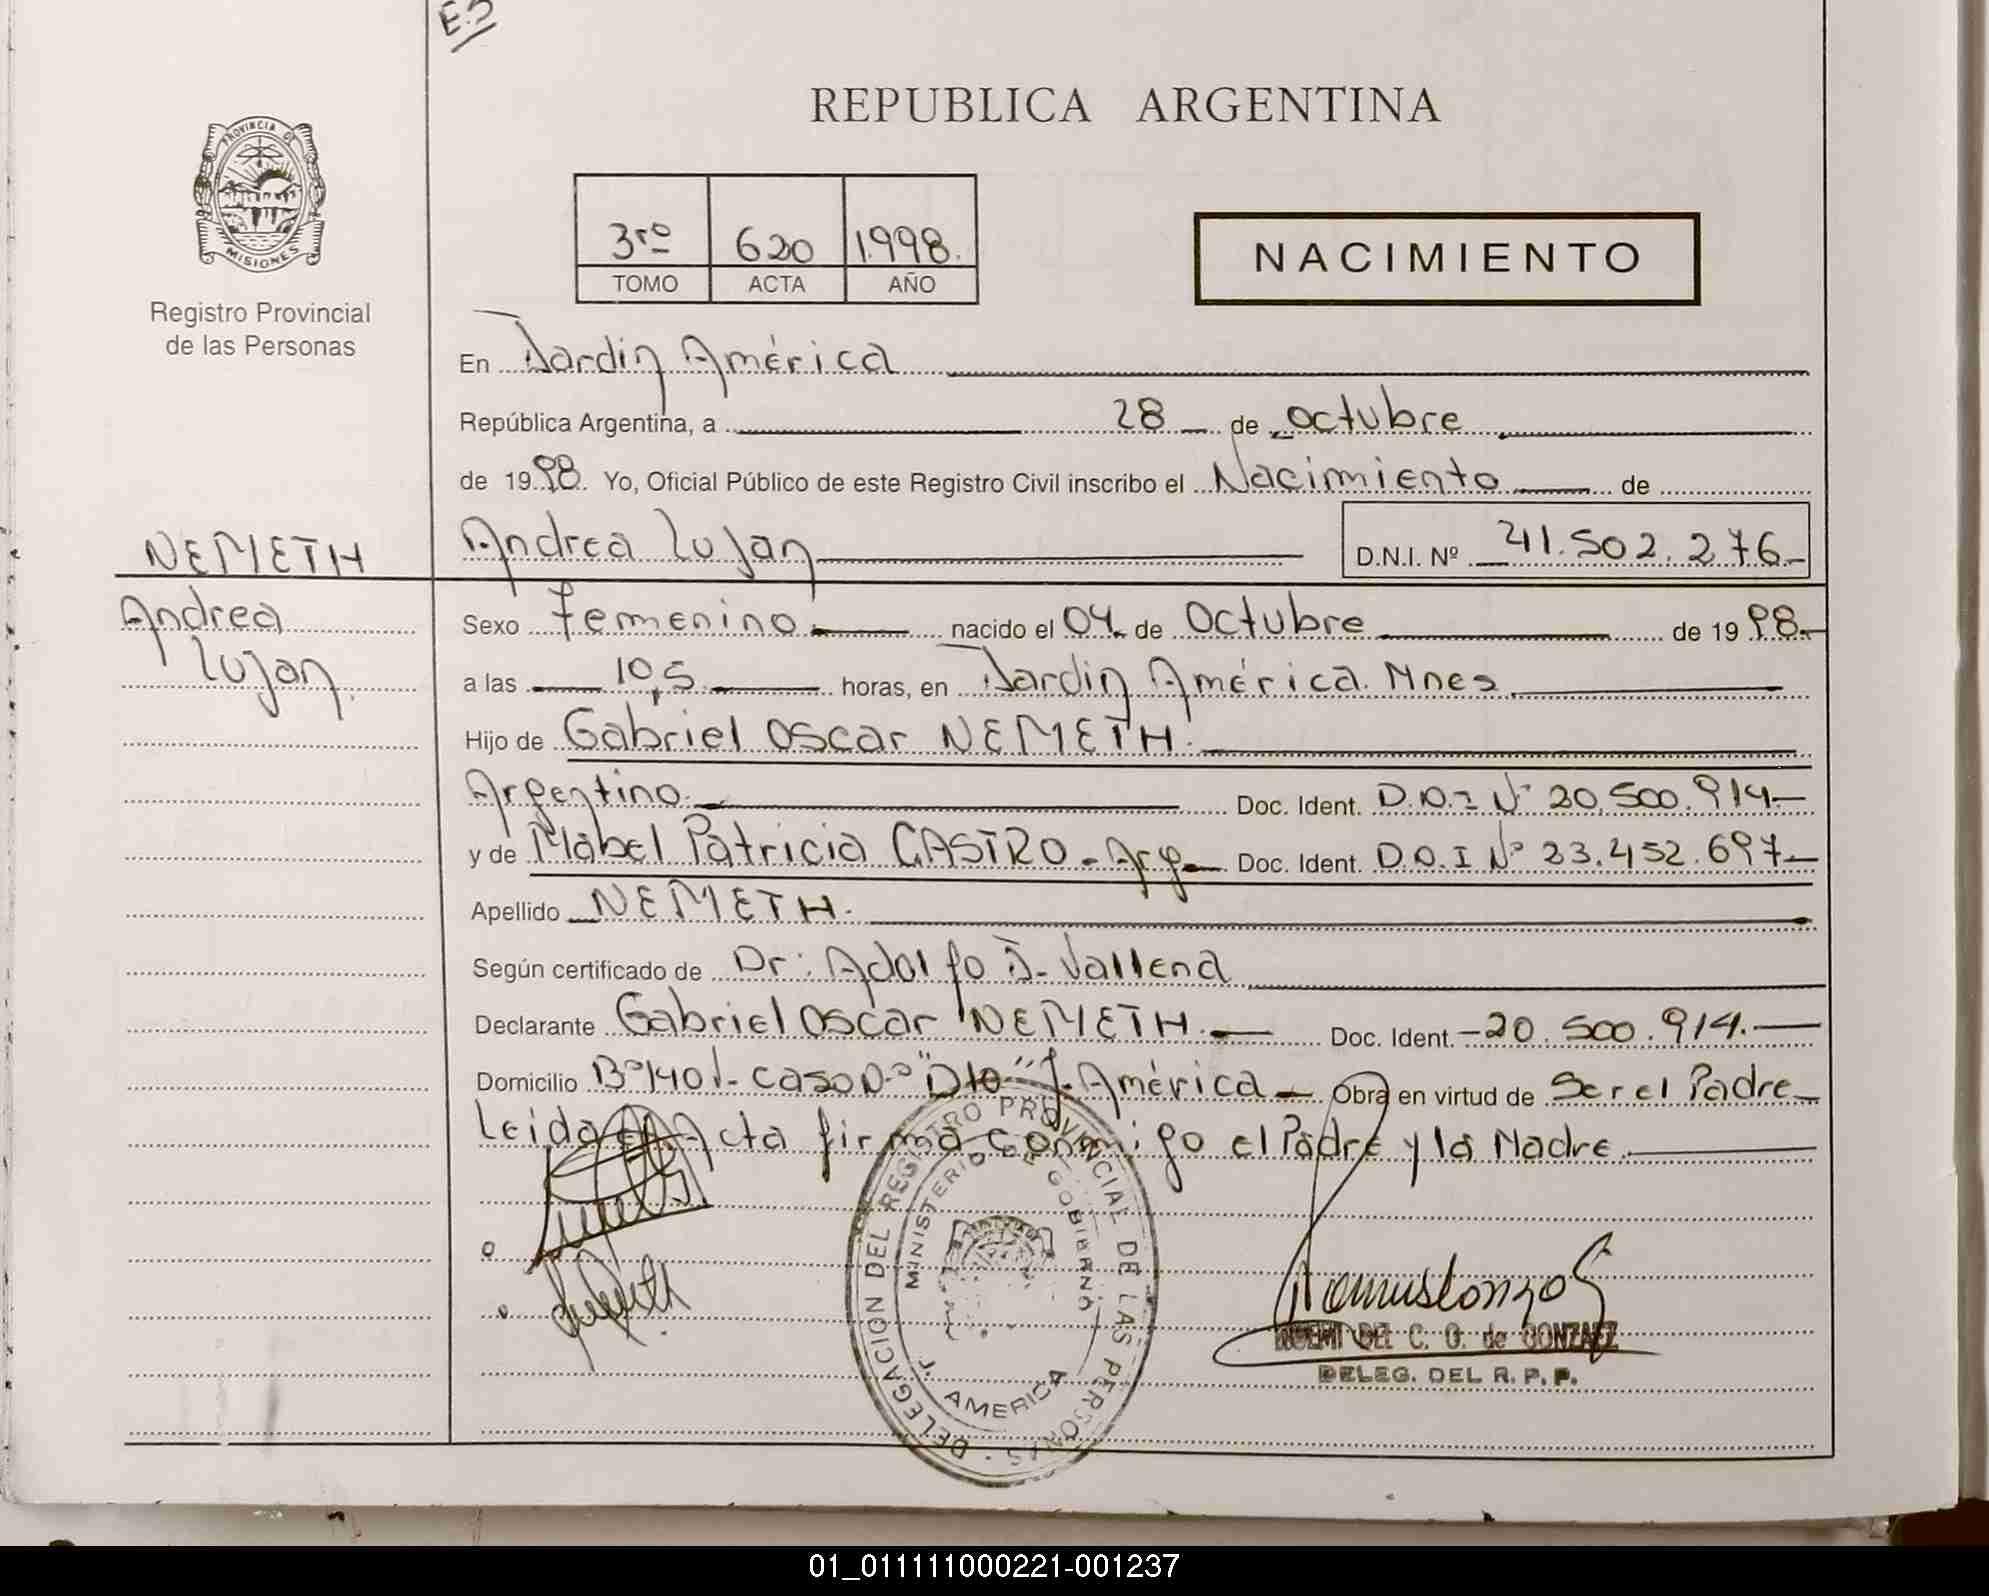 E.5
REPUBLICA ARGENTINA
PROVINCIA DE
MISIONES
Registro Provincial
de las Personas
3ro 620 1.998.
TOMO ACTA AÑO
NACIMIENTO
En Jardin América
República Argentina, a 28 de octubre
de 1998. Yo, Oficial Público de este Registro Civil inscribo el Nacimiento de
NEMETH
Andrea Lujan D.N.I. Nº 41.502.276.-
Andrea
Lujan.
Sexo Femenino. nacido el 04. de Octubre de 1998.-
a las 10,5 horas, en Jardin América. Mnes.
Hijo de Gabriel Oscar NEMETH.
Argentino. Doc. Ident. D.N.I Nº 20.500.914.-
y de Mabel Patricia CASTRO.- Arg. Doc. Ident. D.N.I Nº 23.452.697.-
Apellido NEMETH.
Según certificado de Dr: Adolfo J. Vallena
Declarante Gabriel Oscar NEMETH. Doc. Ident. -20.500.914.-
Domicilio Bº140 V- casa N.º "D10" J. América. Obra en virtud de Ser el Padre
Leida el Acta firma conmigo el Padre y la Madre.
DELEGACION DEL REGISTRO PROVINCIAL DE LAS PERSONAS
MINISTERIO DE GOBIERNO
J. AMERICA
NOEMI DEL C. O. de GONZALEZ
DELEG. DEL R. P. P.
01_011111000221-001237